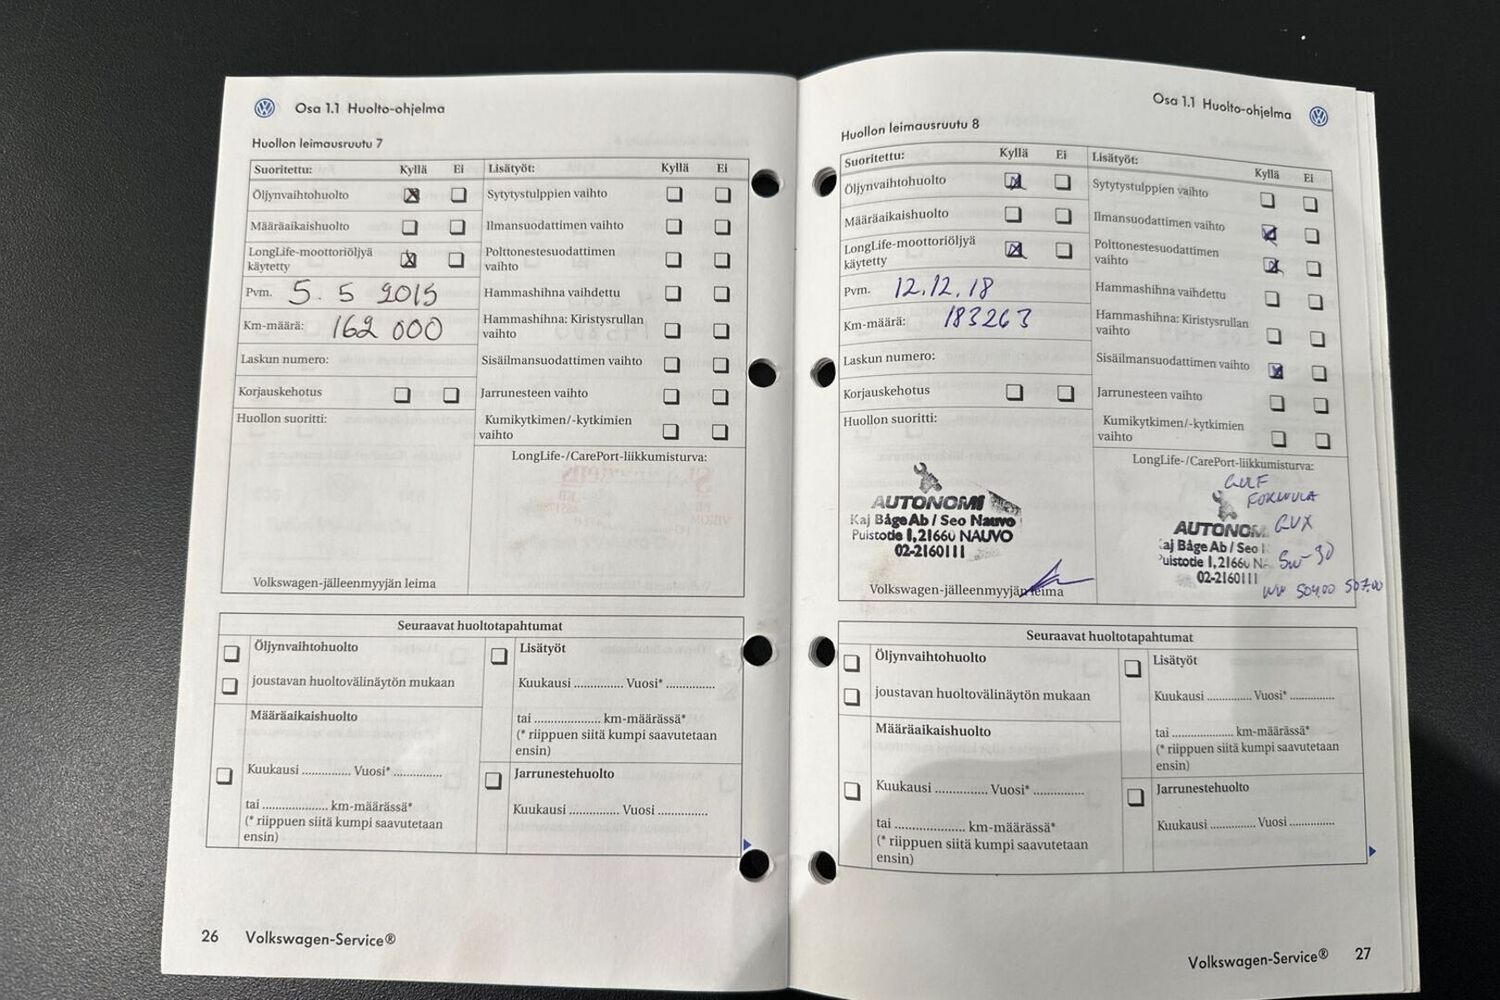 Osa 1.1 Huolto-ohjelma
Huollon leimausruutu 7
Suoritettu: Kyllä Ei
Öljynvaihtohuolto
Määräaikaishuolto
LongLife-moottoriöljyä
käytetty
Pvm. 5. 5 2015
Km-määrä: 162 000
Laskun numero:
Korjauskehotus
Huollon suoritti:
Volkswagen-jälleenmyyjän leima
Lisätyöt: Kyllä Ei
Sytytystulppien vaihto
Ilmansuodattimen vaihto
Polttonestesuodattimen
vaihto
Hammashihna vaihdettu
Hammashihna: Kiristysrullan
vaihto
Sisäilmansuodattimen vaihto
Jarrunesteen vaihto
Kumikytkimen/-kytkimien
vaihto
LongLife-/CarePort-liikkumisturva:
Seuraavat huoltotapahtumat
Öljynvaihtohuolto
joustavan huoltovälinäytön mukaan
Määräaikaishuolto
Kuukausi .............. Vuosi* ..............
tai .................... km-määrässä*
(* riippuen siitä kumpi saavutetaan
ensin)
Lisätyöt
Kuukausi .............. Vuosi* ..............
tai .................... km-määrässä*
(* riippuen siitä kumpi saavutetaan
ensin)
Jarrunestehuolto
Kuukausi .............. Vuosi ..............
26 Volkswagen-Service®
Osa 1.1 Huolto-ohjelma
Huollon leimausruutu 8
Suoritettu: Kyllä Ei
Öljynvaihtohuolto
Määräaikaishuolto
LongLife-moottoriöljyä
käytetty
Pvm. 12.12.18
Km-määrä: 183263
Laskun numero:
Korjauskehotus
Huollon suoritti:
AUTONOMI
Kaj Båge Ab / Seo Nauvo
Puistotie 1, 21660 NAUVO
02-2160111
Volkswagen-jälleenmyyjän leima
Lisätyöt: Kyllä Ei
Sytytystulppien vaihto
Ilmansuodattimen vaihto
Polttonestesuodattimen
vaihto
Hammashihna vaihdettu
Hammashihna: Kiristysrullan
vaihto
Sisäilmansuodattimen vaihto
Jarrunesteen vaihto
Kumikytkimen/-kytkimien
vaihto
LongLife-/CarePort-liikkumisturva:
GULF
FORMULA
GVX
5w-30
VW 504.00 507.00
AUTONOM
aj Båge Ab / Seo
uistotie 1, 21660 N
02-2160111
Seuraavat huoltotapahtumat
Öljynvaihtohuolto
joustavan huoltovälinäytön mukaan
Määräaikaishuolto
Kuukausi .............. Vuosi* ..............
tai .................... km-määrässä*
(* riippuen siitä kumpi saavutetaan
ensin)
Lisätyöt
Kuukausi .............. Vuosi* ..............
tai .................... km-määrässä*
(* riippuen siitä kumpi saavutetaan
ensin)
Jarrunestehuolto
Kuukausi .............. Vuosi ..............
Volkswagen-Service® 27